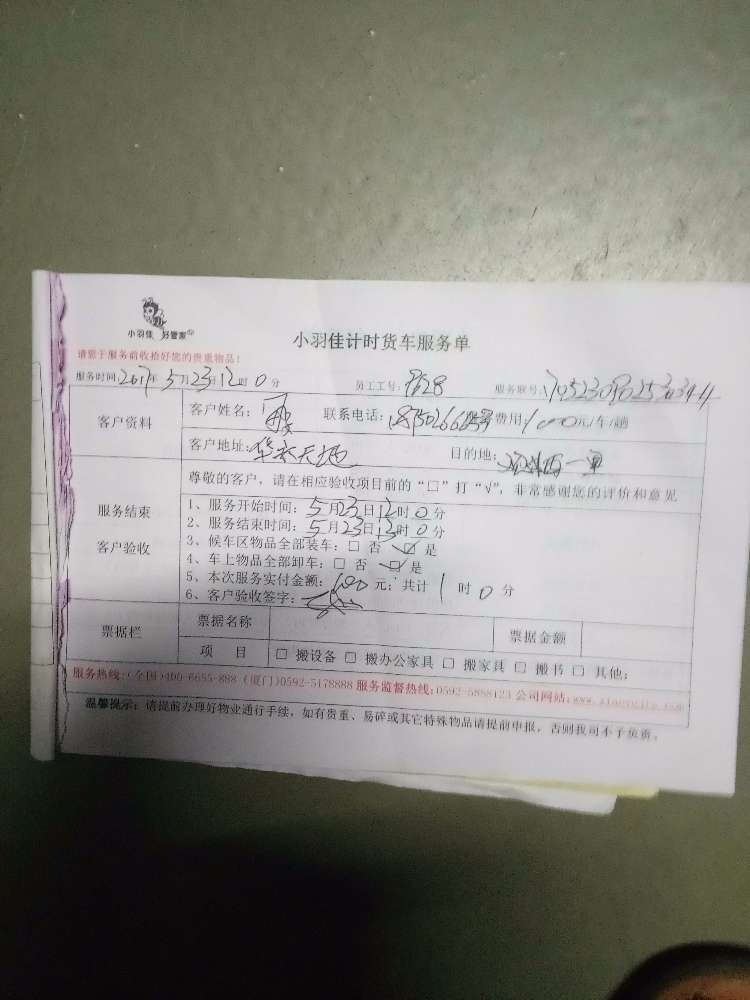 小羽佳 好管家
小羽佳计时货车服务单
请您于服务前收拾好您的贵重物品！
服务时间:2017年5月23日12时0分 员工工号: 服务联号:
客户资料 客户姓名: 联系电话: 费用: 元/车/趟
客户地址: 目的地:
服务结束 客户验收
尊敬的客户，请在相应验收项目前的“□”打“√”，非常感谢您的评价和意见
1、服务开始时间：5月23日12时0分
2、服务结束时间：5月23日13时0分
3、候车区物品全部装车：□ 否 ☑ 是
4、车上物品全部卸车：□ 否 ☑ 是
5、本次服务实付金额：100元；共计1时0分
6、客户验收签字：
票据栏 票据名称 票据金额
项 目 □ 搬设备 □ 搬办公家具 □ 搬家具 □ 搬书 □ 其他：
服务热线：(全国)400-6655-888 (厦门)0592-5178888 服务监督热线：0592-5888123 公司网站：
温馨提示：请提前办理好物业通行手续，如有贵重、易碎或其它特殊物品请提前申报，否则我司不予负责。